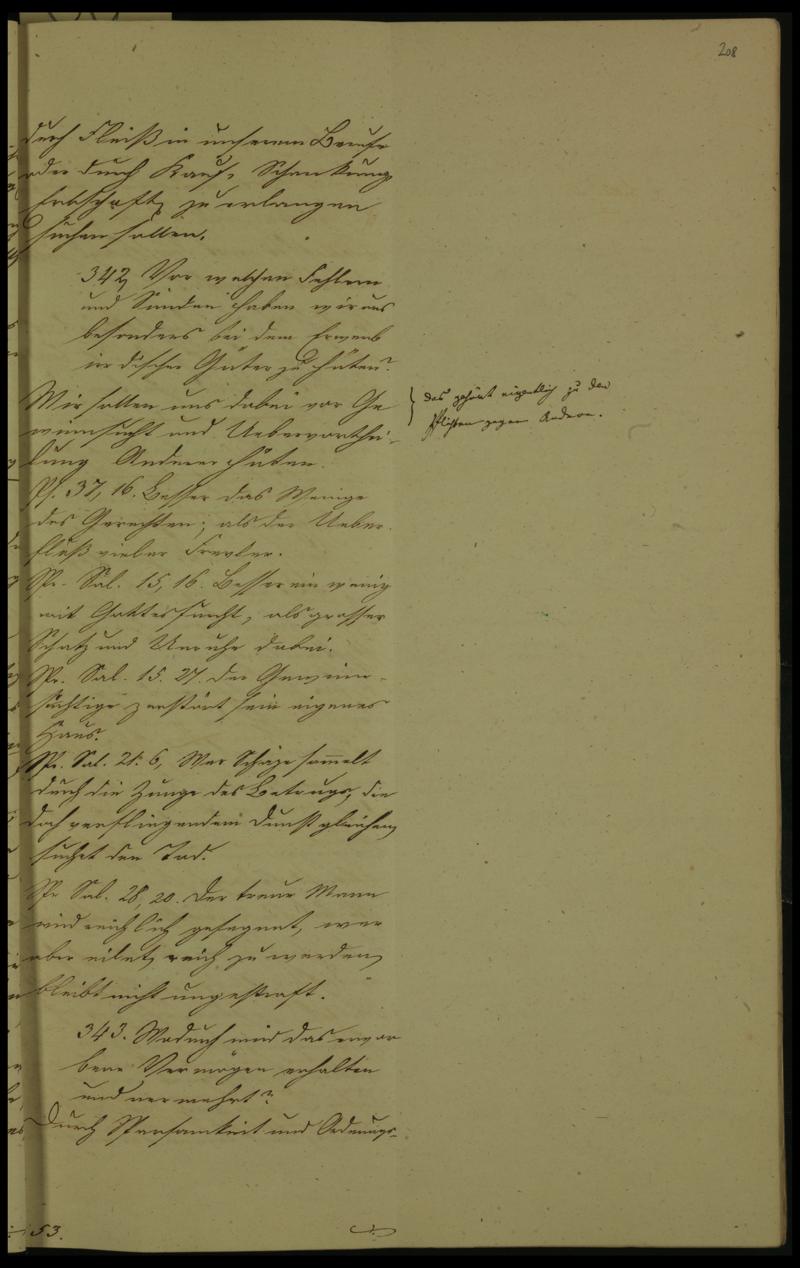 208
durch Fleiß in unserem Berufe
oder durch Kauf, Schenkung,
Erbschaft, zu erlangen
suchen sollen.
342, Vor welchen Fehlern
und Sünden haben wir uns
besonders bei dem Erwerb
irdischer Güter zu hüten?
Wir sollen uns dabei vor Ge
winnsucht und Uebervorthei-
lung Anderer hüten.
das gehört eigentlich zu den
Pflichten gegen Andere.
Ps. 37, 16. Besser das Wenige
des Gerechten, als der Ueber-
fluß vieler Frevler.
Spr. Sal. 15, 16. Besser ein wenig
mit Gottesfurcht, als grosser
Schatz und Unruhe dabei.
Spr. Sal. 15. 27. Der Gewinn-
süchtige zerstört sein eigenes
Haus.
Spr. Sal. 21. 6, Wer Schäze sammelt
durch die Zunge des Betrugs, die
doch verfliegendem Dunst gleichen,
suchet den Tod.
Spr Sal. 28, 20. Der treue Mann
wird reichlich gesegnet, wer
aber eilet, reich zu werden,
bleibt nicht ungestraft.
343. Wodurch wird das erwor
bene Vermögen erhalten
und vermehrt?
Durch Sparsamkeit und Ordnungs-
53.